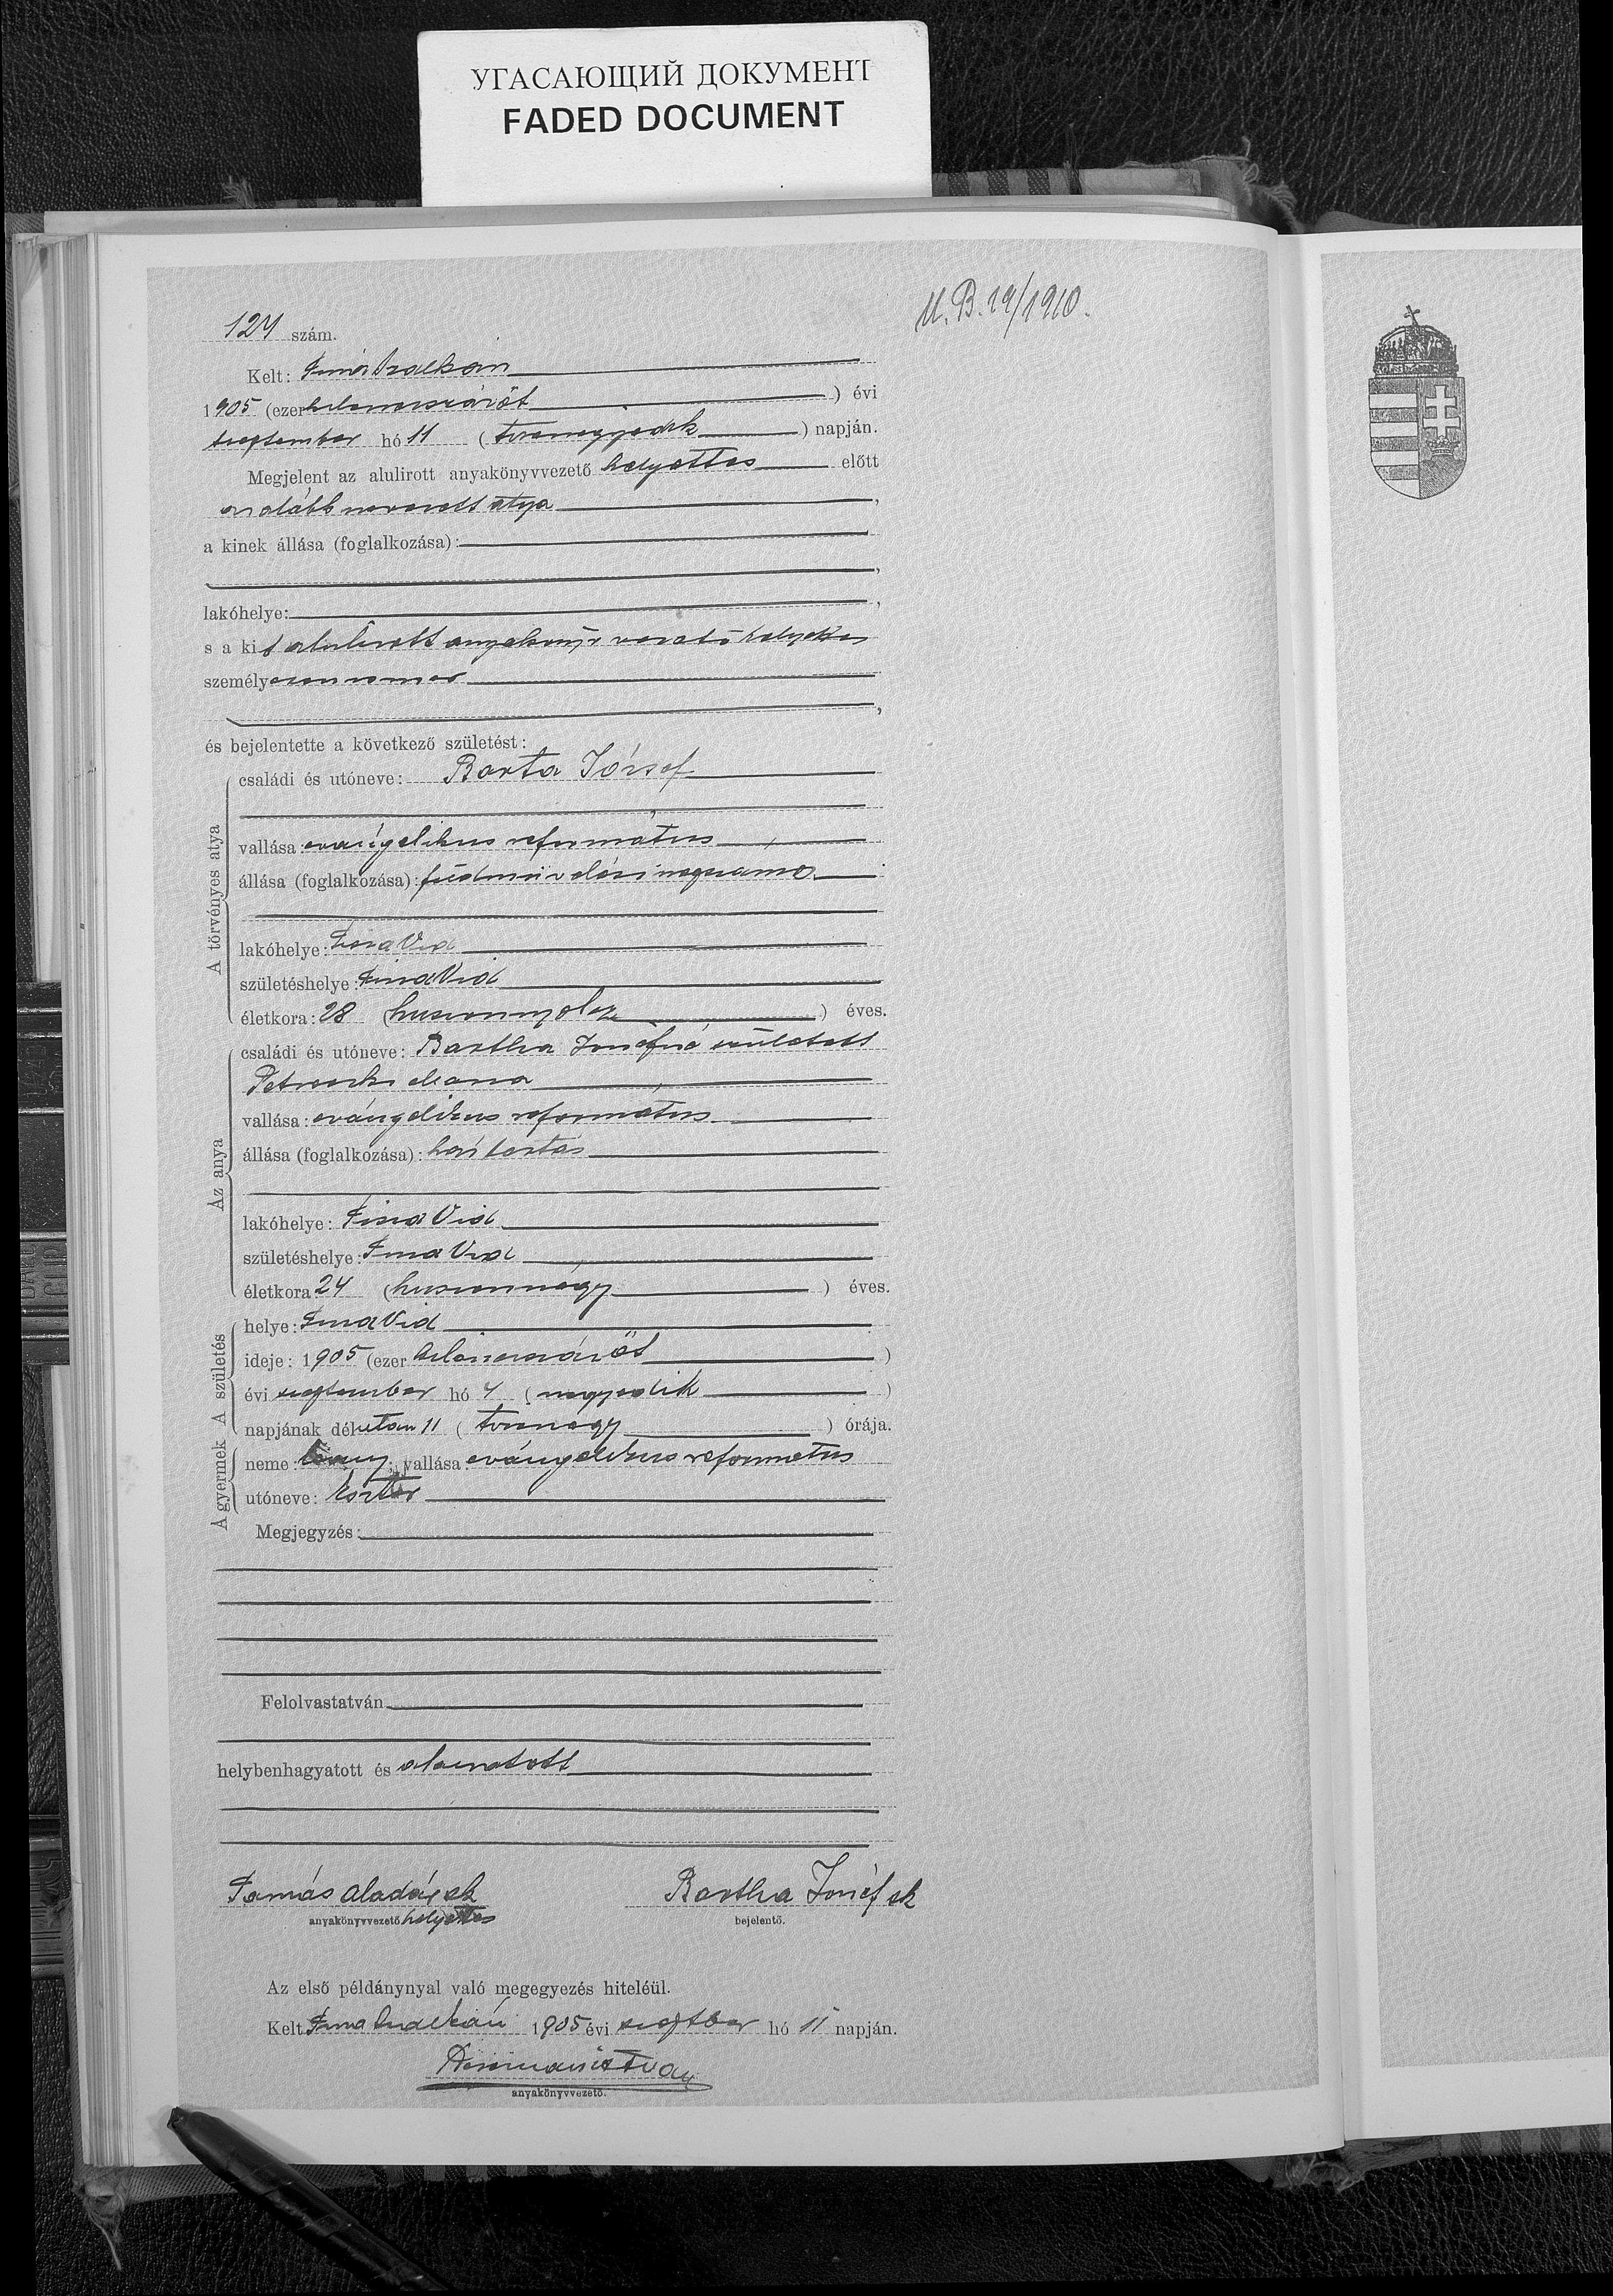 УГАСАЮЩИЙ ДОКУМЕНТ
FADED DOCUMENT
M. B. 19/1910.
124 szám.
Kelt: Tiszaszalkán
1905 (ezerkilenczszázöt) évi
szeptember hó 11 (tizenegyedik) napján.
Megjelent az alulirott anyakönyvvezető helyettes előtt
az alább nevezett atya,
a kinek állása (foglalkozása):
,
lakóhelye: ,
s a kit alulirott anyakönyvvezető helyettes
személyesen ismer
,
és bejelentette a következő születést:
A törvényes atya
családi és utóneve: Barta József
vallása: evángelikus református
állása (foglalkozása): földmüvelési napszámos
lakóhelye: TiszaVid
születéshelye: TiszaVid
életkora: 28 (huszonnyolcz) éves.
Az anya
családi és utóneve: Bartha Józsefné született
Petruska Mária
vallása: evángelikus református
állása (foglalkozása): háztartás
lakóhelye: TiszaVid
születéshelye: TiszaVid
életkora 24 (huszonnégy) éves.
A születés
helye: TiszaVid
ideje: 1905 (ezer kilenczszázöt)
évi szeptember hó 4 (negyedik)
napjának délután 11 (tizenegy) órája.
A gyermek
neme: leány, vallása: evángelikus református
utóneve: Eszter
Megjegyzés:
Felolvastatván
helybenhagyatott és aláiratott
Tamás Aladár sk Bartha József sk
anyakönyvvezető helyettes bejelentő.
Az első példánynyal való megegyezés hiteléül.
Kelt Tiszaszalkán 1905 évi szeptber hó 11 napján.
István
anyakönyvvezető.